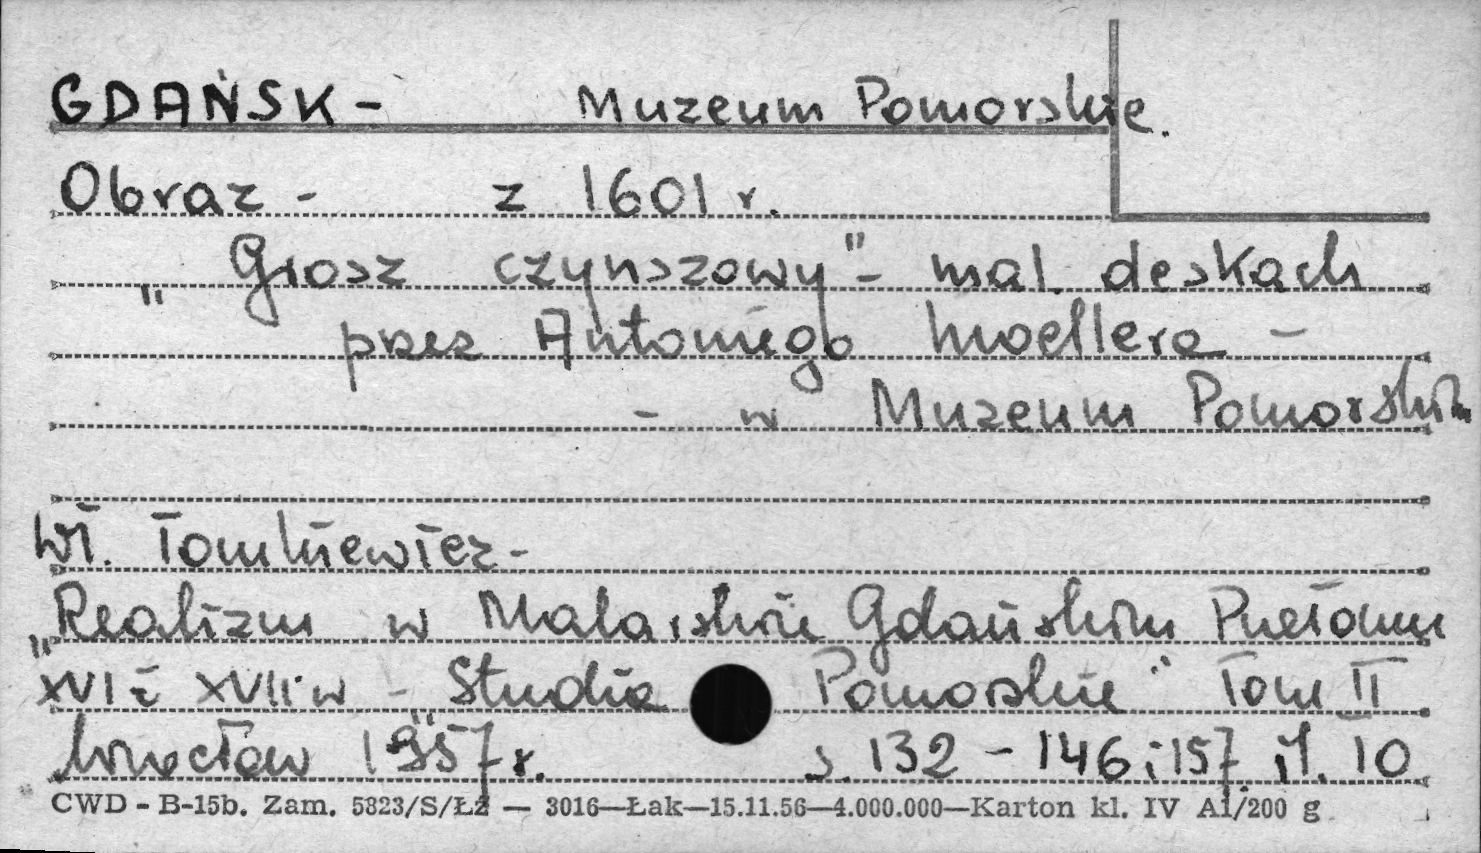 GDAŃSK - Muzeum Pomorskie.
Obraz - z 1601 r.
"Grosz czynszowy" - mal. deskach
przez Antoniego Moellera -
- w Muzeum Pomorskim
Wł. Tomkiewicz -
"Realizm w Malarstwie Gdańskim Przełomu
XVI i XVII w - Studia Pomorskie" Tom II
Wrocław 1957 r. s. 132 - 146 i 157. il. 10
CWD - B-15b. Zam. 5823/S/ŁŻ — 3016—Łak—15.11.56—4.000.000—Karton kl. IV A1/200 g